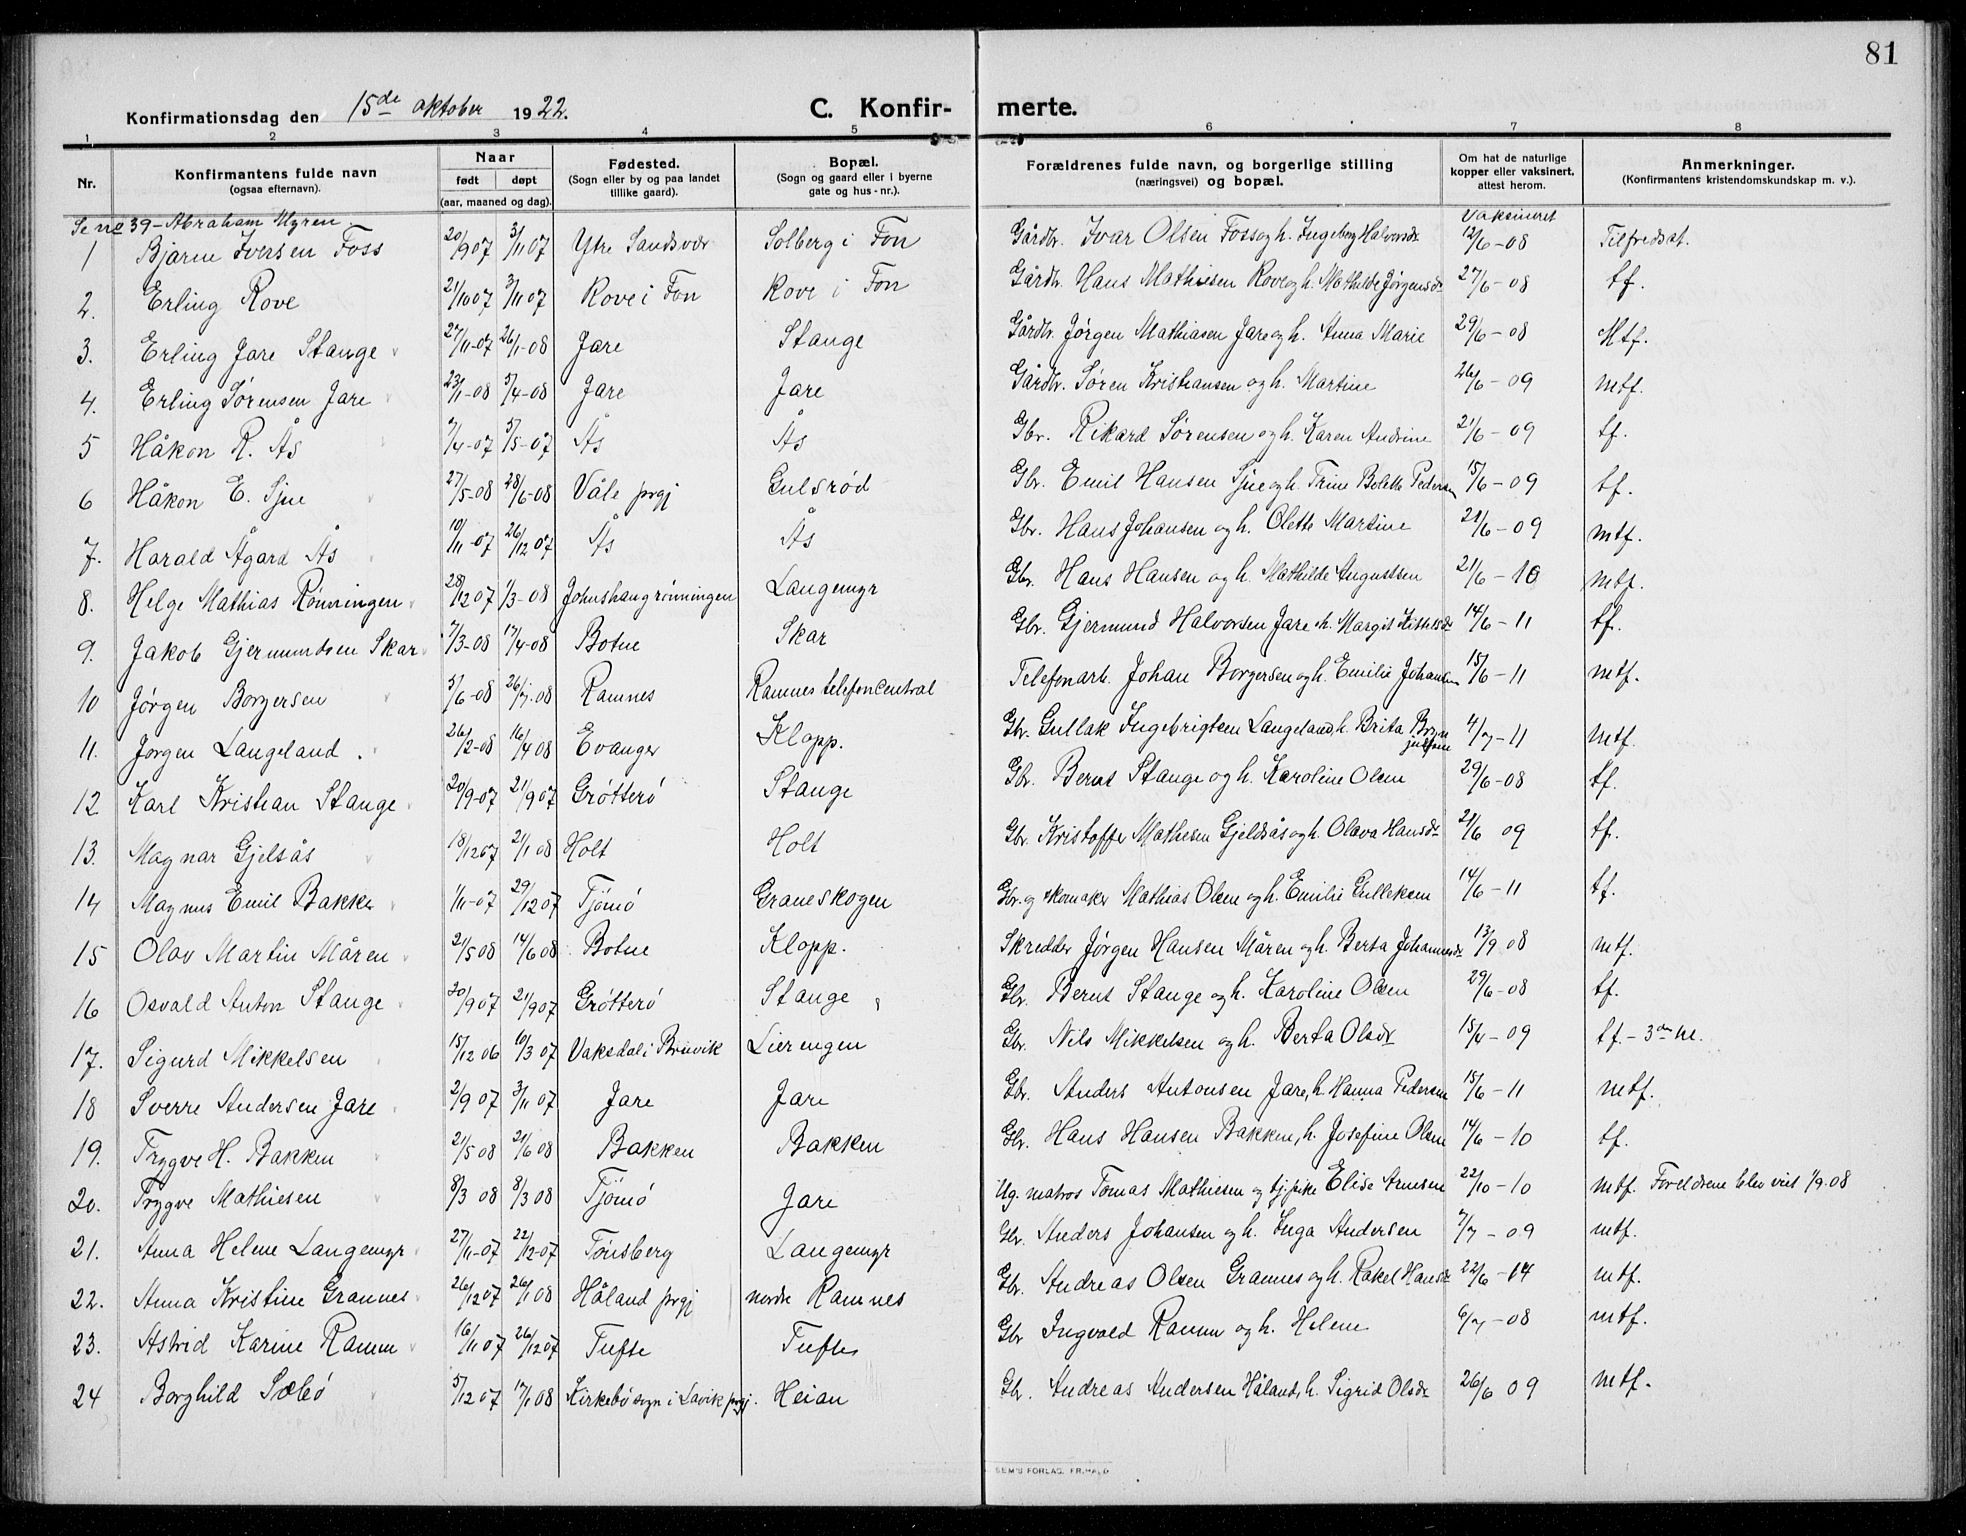 81
Konfirmationsdag den 15de oktober 1922. C. Konfir- merte.
1 2 3 4 5 6 7 8
Nr. Konfirmantens fulde navn (ogsaa efternavn). Naar født døpt (aar, maaned og dag). Fødested. (Sogn eller by og paa landet tillike gaard). Bopæl. (Sogn og gaard eller i byerne gate og hus-nr.). Forældrenes fulde navn, og borgerlige stilling (næringsvei) og bopæl. Om hat de naturlige kopper eller vaksinert, attest herom. Anmerkninger. (Konfirmantens kristendomskundskap m. v.).
Se no 39 - Abraham Myren. Vaksineret
1 Bjarne Iversen Foss 20/9 07 3/11 07 Ytre Sandsvær Solberg i Fon Gårdbr. Ivar Olsen Foss og h. Ingeborg Halvorsdr 12/6-08 Tilfredsst.
2. Erling Rove 21/10 07 3/11 07 Rove i Fon Rove i Fon Gårdbr. Hans Mathisen Rove og h. Mathilde Jørgensdr 27/6-08 tf.
3. Erling Jare Stange 27/11-07 26/1-08 Jare Stange Gårdbr. Jørgen Mathiasen Jare og h. Anna Marie 29/6-08 Mtf.
4. Erling Sørensen Jare 23/1-08 5/4-08 Jare Jare Gårdbr. Søren Kristiansen og h. Martine 26/6-09 mtf.
5 Håkon R. Ås 7/4-07 5/5-07 Ås Ås Gbr. Rikard Sørensen og h. Karen Andrine 21/6-09 tf.
6 Håkon E. Sjue 27/5-08 28/6-08 Våle prgj Gulsrød Gbr. Emil Hansen Sjue og h. Trine Bolette Pedersen 15/6-09 tf.
7. Harald Ågard Ås 10/11-07 26/12 07 Ås Ås Gbr. Hans Johansen og h. Olette Martine 21/6-09 mtf.
8. Helge Mathias Rønningen 28/12 07 1/3-08 Johnshaugrønningen Langemyr Gbr. Hans Hansen og h. Mathilde Augustsen 21/6-10 mtf.
9. Jakob Gjermundsen Skar 7/3-08 17/4-08 Botne Skar Gbr. Gjermund Halvorsen Jare h. Margit Kittelsdr 14/6-11 tf.
10 Jørgen Borgersen 5/6-08 26/7-08 Ramnes Ramnes telefoncentral Telefonarb. Johan Borgersen og h. Emilie Johansen 15/6-11 mtf.
11. Jørgen Langeland. 26/2-08 16/4 08 Evanger Klopp. Gbr. Gullak Ingebrigtsen Langeland, h. Brita Brynjulfsine 4/7-11 mtf.
12 Karl Kristian Stange 20/9-07 21/9 07 Grøtterø Stange Gbr. Bernt Stange og h. Karoline Olsen 29/6-08 tf.
13. Magnar Gjelsås 18/12 07 21/1 08 Holt Holt Gbr. Kristoffer Mathesen Gjeldsås og h. Olava Hansdr 21/6 09 tf.
14 Magnus Emil Bakken 1/11-07 29/12 07 Tjømø Graneskogen Gbr. og skomaker Mathias Olsen og h. Emilie Gulleksen 14/6-11 tf.
15 Olav Martin Måren 21/5 08 14/6 08 Botne Klopp. Skredder Jørgen Hansen Måren og h. Berta Johannesdr 13/9 08 mtf.
16 Osvald Anton Stange 20/9 07 21/9 07 Grøtterø Stange Gbr. Bernt Stange og h. Karoline Olsen 29/6-08 tf.
17. Sigurd Mikkelsen 15/12 06 10/3 07 Vaksdal i Bruvik Lierengen Gbr. Nils Mikkelsen og h. Berta Olsdr 15/4-09 tf.-3die kl.
18 Sverre Andersen Jare 2/9 07 3/11 07 Jare Jare Gbr. Anders Antonsen Jare, h. Hanna Pedersen 15/6-11 mtf.
19. Trygve H. Bakken 21/5 08 21/6 08 Bakken Bakken Gbr. Hans Hansen Bakken, h. Josefine Olsen 14/6-10 tf.
20. Trygve Mathiesen 8/3 08 8/3 08 Tjømø Jare Ug. matros Tomas Mathiesen og tj. pike Elise Arnesen 22/10-10 mtf. Foreldrene blev viet 1/9.08
21. Anna Helene Langemyr 27/11-07 22/12-07 Tønsberg Langemyr Gbr. Anders Johansen og h. Inga Andersen 7/7-09 mtf.
22. Anna Kristine Grannes 26/12 07 26/1 08 Håland prgj nordre Ramnes Gbr. Andreas Olsen Grannes og h. Rakel Hansdr 22/6-14 mtf.
23. Astrid Karine Ramm 16/11 07 26/12 07 Tufte Tufte Gbr. Ingvald Ramm og h. Helene 6/7-08 mtf.
24 Borghild Sæbø 5/12 07 17/1 08 Kirkebø sogn i Lavik prgj. Heian Gbr. Andreas Andersen Håland, h. Sigrid Olsdr 26/6 09 mtf.
SEM'S FORLAG, FR.HALD